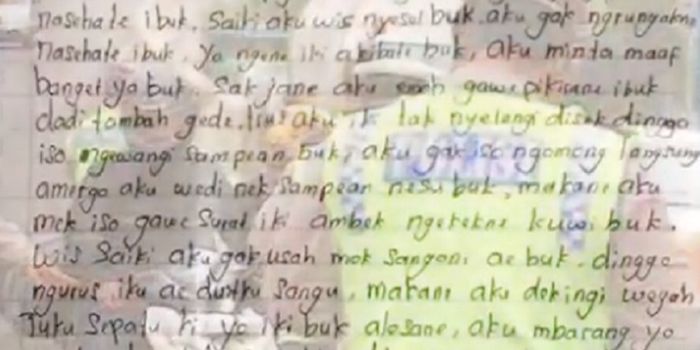 nasehate ibuk. Saiki aku wis nyesel buk. aku gak ngrungokne
nasehate ibuk. Yo ngene iki akibate buk, aku minta maaf
banget ya buk. Sak jane aku emoh gawe pikirane ibuk
dadi tambah gede. terus aku iki tak nyelengi disek dinggo
iso ngewangi sampean buk, aku gak iso ngomong langsung
amergo aku wedi nek sampean nesu buk, makane aku
mek iso gawe surat iki ambek ngetekne kuwi buk.
Wis saiki aku gak usah mok sangoni ae buk. dinggo
ngurus iku ae duitku sangu, makane aku dekingi wegah
Tuku sepatu ki yo iki buk alesane, aku mbarang yo